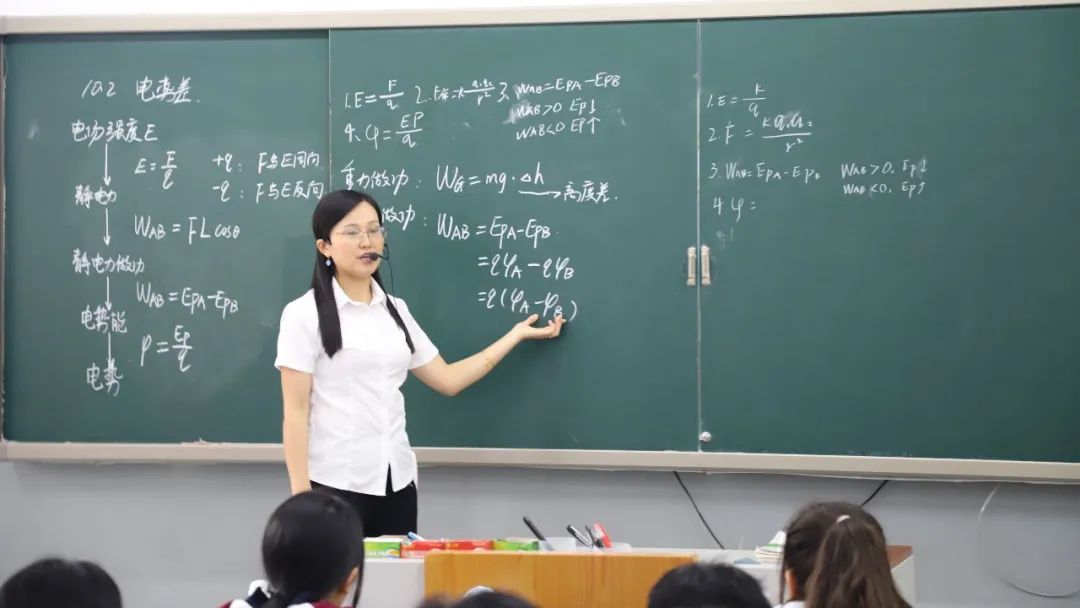 10.2 电势差.
电场强度E
E=F/q +q: F与E同向
-q: F与E反向
静电力
W_AB=FLcosθ
静电力做功
W_AB=E_PA-E_PB
电势能
φ=E_P/q
电势
1.E=F/q 2.F库=k q₁q₂/r² 3.W_AB=E_PA-E_PB
W_AB>0 E_P↓
W_AB<0 E_P↑
4.φ=E_P/q
重力做功: W_G=mg·Δh → 高度差.
做功: W_AB=E_PA-E_PB
=qφ_A-qφ_B
=q(φ_A-φ_B)
1.E=F/q
2.F=kq₁q₂/r²
3.W_AB=E_PA-E_PB W_AB>0, E_P↓
W_AB<0, E_P↑
4.φ=